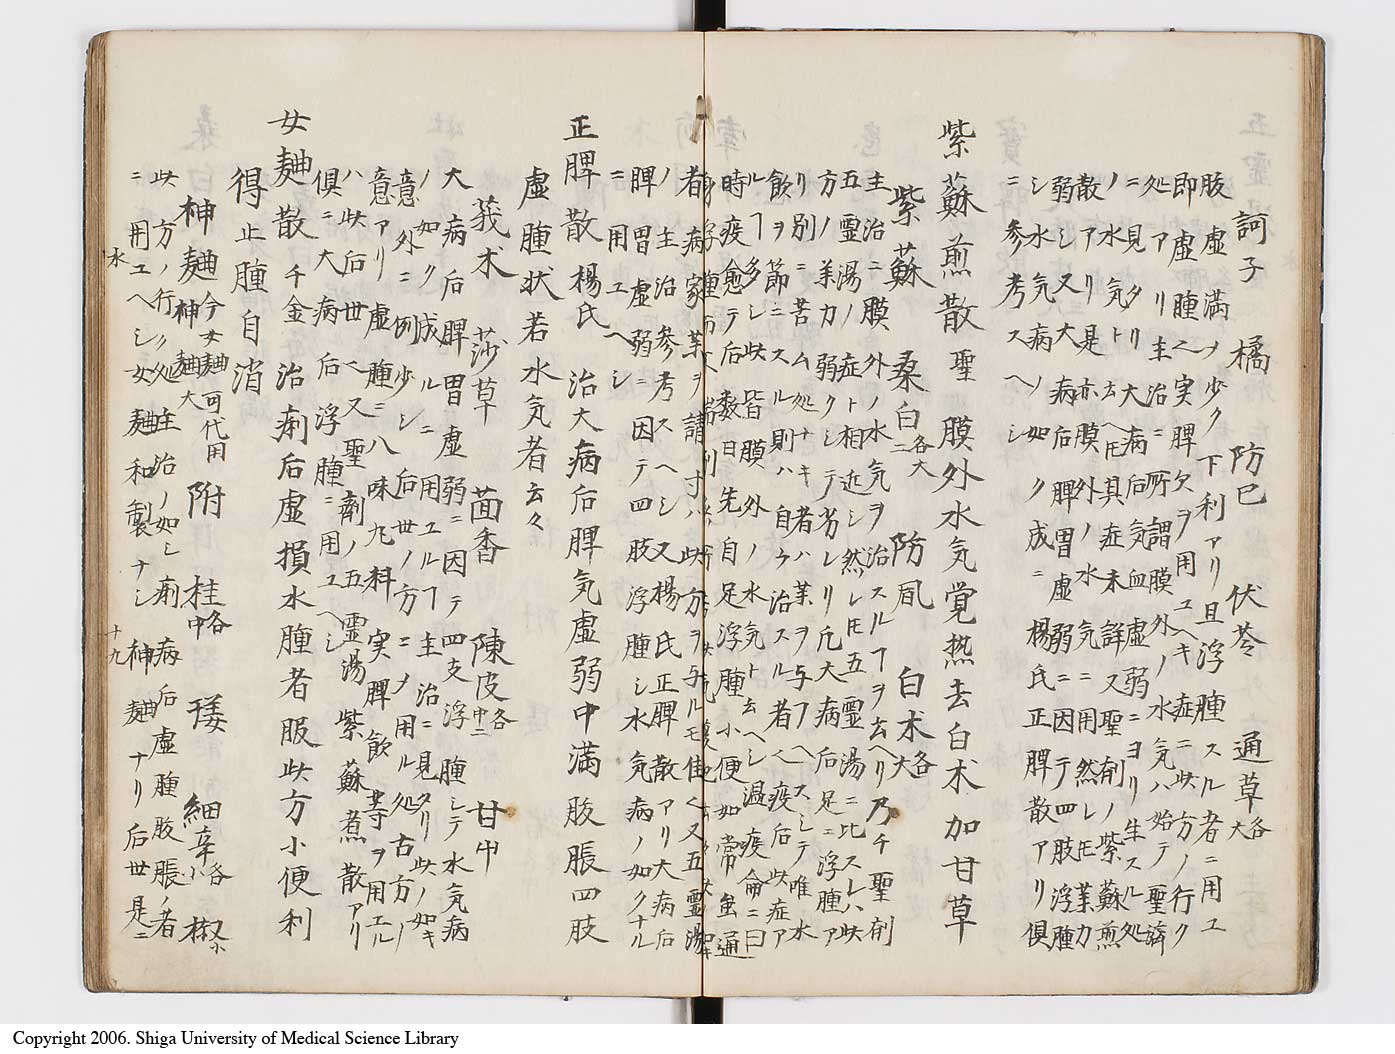 訶子 橘 防巳 伏苓 通草各大
腹虚満ノ少ク下利アリ且浮腫スル者ニ用ユ
即虚腫へ実脾欠ヲ用ユヘキ症ニ此方ノ行ク
処アリ主治ニ所謂膜外ノ水気ハ始テ聖済
ニ見タリ大病后気血虚弱ニヨリ生スル処
ノ水気ト云ヘ𪜈其症未詳又聖剤ノ紫蘇煎
散アリ是亦膜外ノ水気ニ用然レ𪜈薬力
弱シ又大病后脾胃虚弱ニ因テ四肢浮腫
シ水気病ノ如ク成ニ楊氏正脾散アリ倶
ニ参考スヘシ
紫蘇煎散聖 膜外水気覚熱去白朮加甘草
紫蘇 桑白各大二 防風 白朮各大
主治ニ膜外ノ水気ヲ治スルヿヲ云ヘリ乃チ聖剤
五霊湯ノ症ト相近シ然レ𪜈五霊湯ニ比スレハ此
方ノ薬力弱クシテ劣レリ凡大病后足ニ浮腫ア
リ別ニ苦ム処ナキ者ハ薬ヲ与フヘスシテ唯水
飲ヲ節ニスル則ハ自ラ治スル者ヘ疫后此症ア
ルヿ多シ此皆膜外ノ水気ト云ヘシ温疫論ニ曰
時疫愈テ后数日先自足浮腫小便如常虽通
者病家薬ヲ請寸ハ此方ヲ与ルモ佳ク又五霊湯
ノ主治参考スヘシ又楊氏正脾散アリ大病后
脾胃虚弱ニ因テ四肢浮腫シ水気病ノ如クナル
ニ用エヘシ
正脾散楊氏 治大病后脾気虚弱中満腹脹四肢
虚腫状若水気者云々
莪朮 莎草 茴香 陳皮各中二 甘中
大病后脾胃虚弱ニ因テ四支浮腫シテ水気病
ノ如ク成ルニ用ユルヿ主治ニ見タリ此ノ如キ
意外ニ例少シ后世ノ方ニメ用ル処古方ノ
意アリ虚腫ニ八味丸料実脾飲等ヲ用エル
ハ此后世ヘ又聖剤ノ五霊湯紫蘇煮散アリ
倶ニ大病后浮腫ニ用ユヘシ
女麯散千金 治痢后虚損水腫者服此方小便利
得止腫自消
神麯今女麯可代用神麯大 附 桂各中 矮 細辛各小 椒小
此方ノ行ク処主治ノ如シ痢病后虚腫腹脹ノ者
ニ用エヘシ女麯和製ナシ神麯ナリ后世是ニ
水
十九